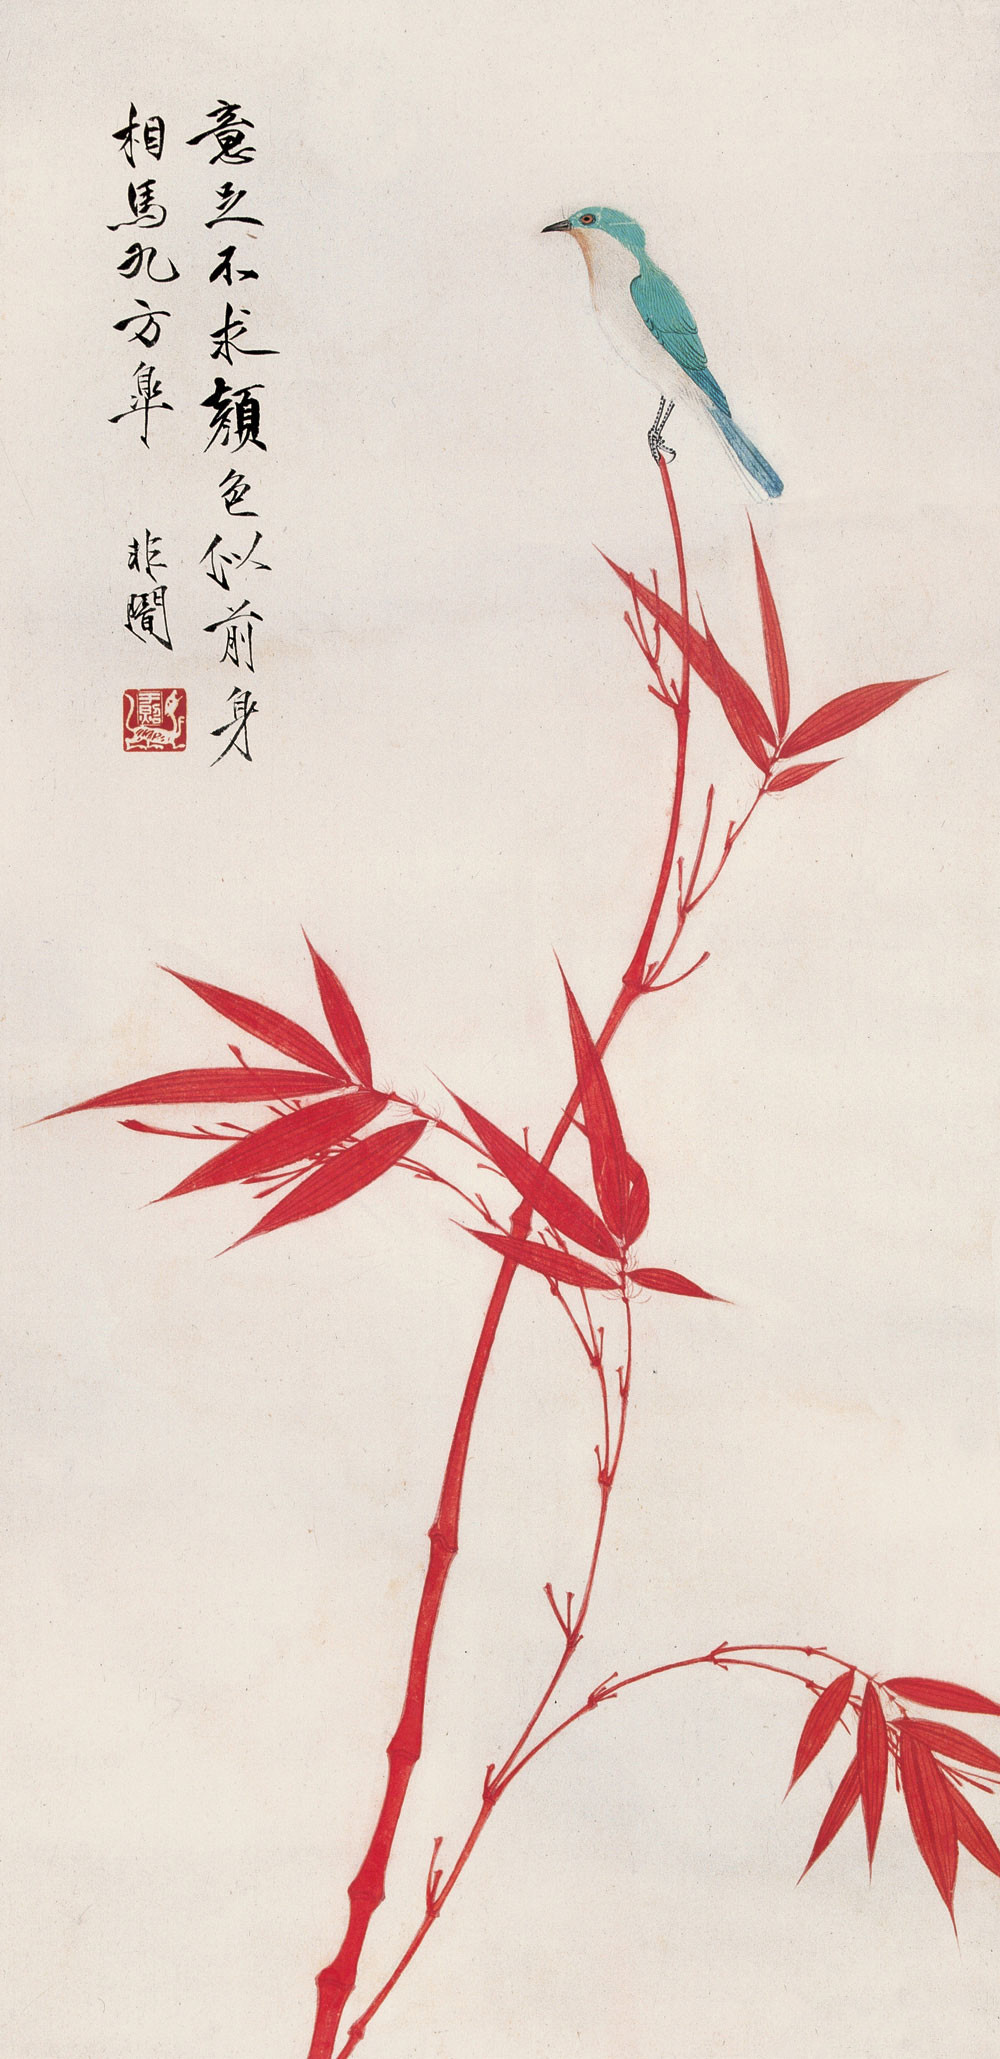 意足不求顏色似前身
相馬九方皐
非闇